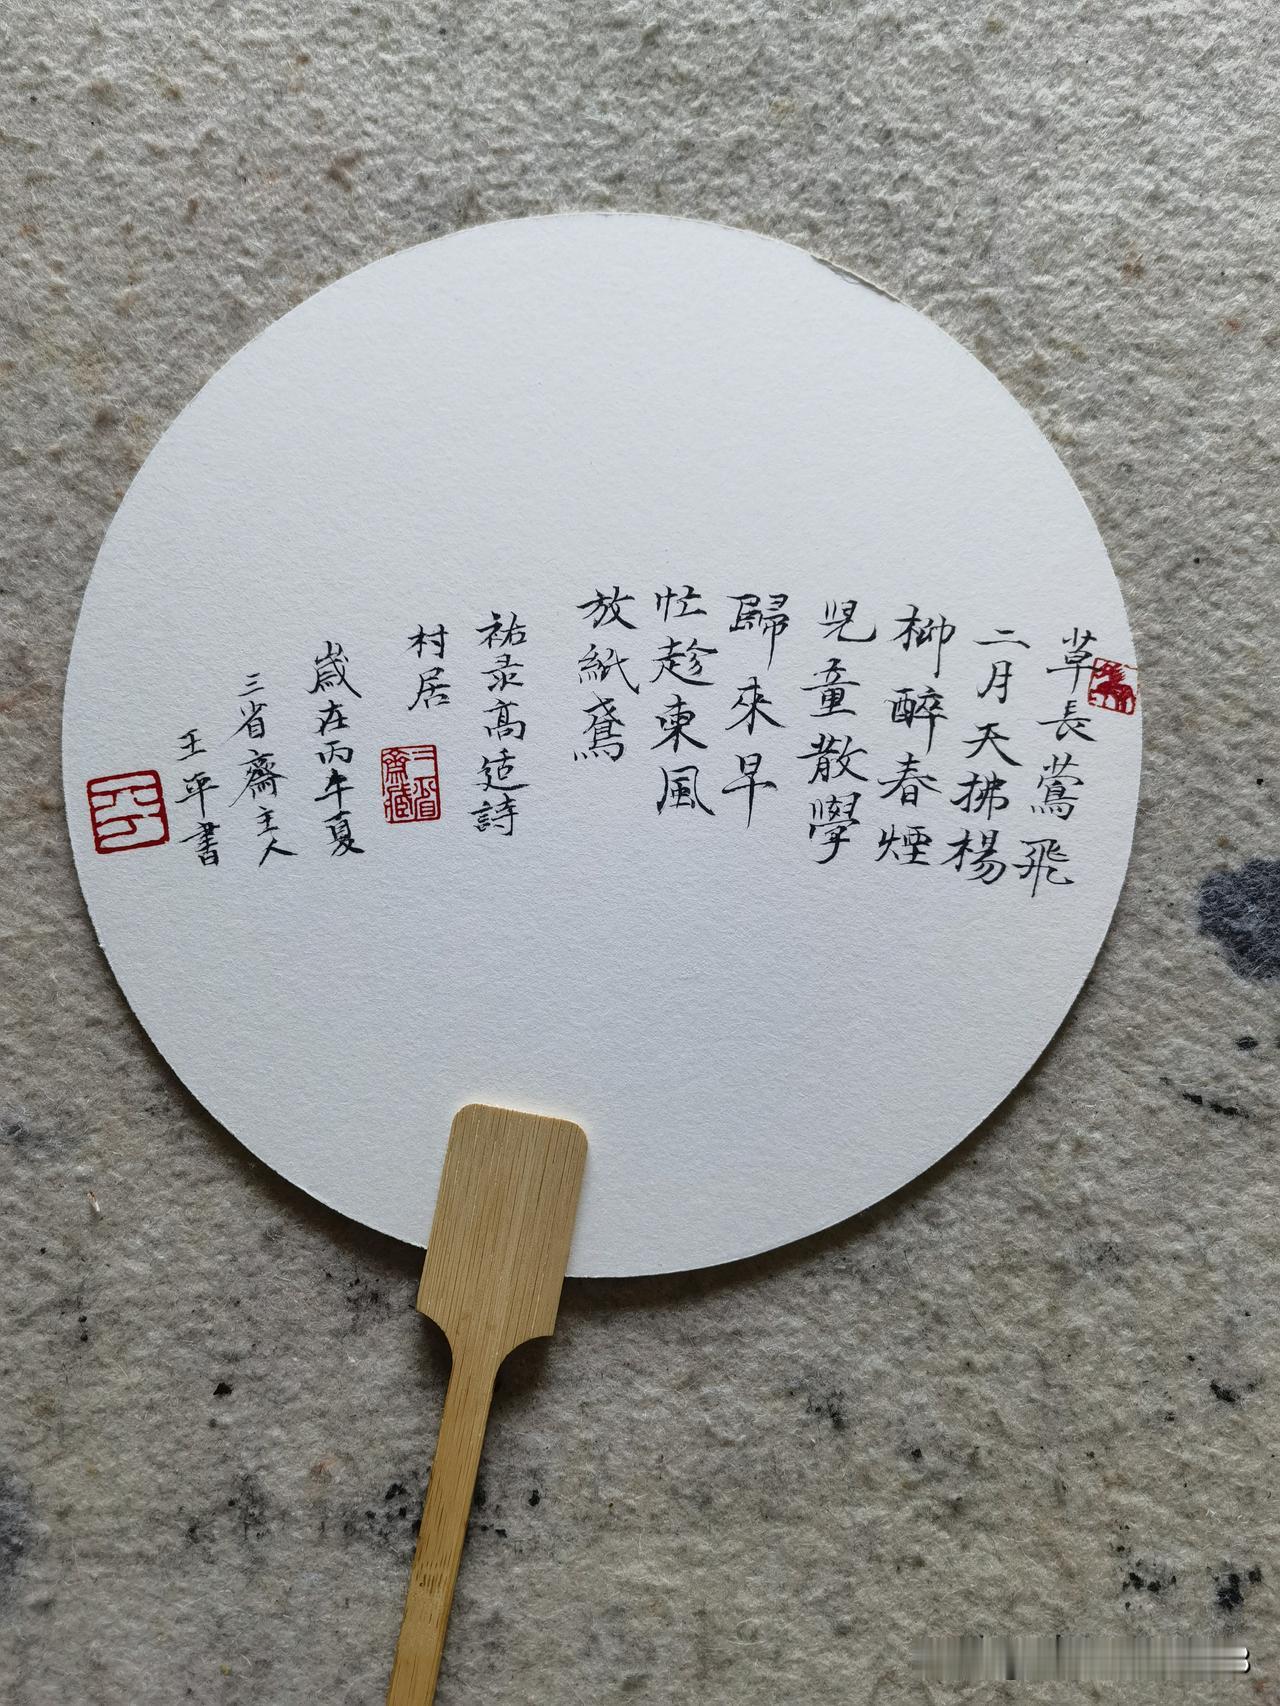 草長鶯飛
二月天拂楊
柳醉春煙
児童散學
歸來早
忙趁東風
放紙鳶
祐录高适詩
村居
三省齋藏
歲在丙午夏
三省齋主人
王平書